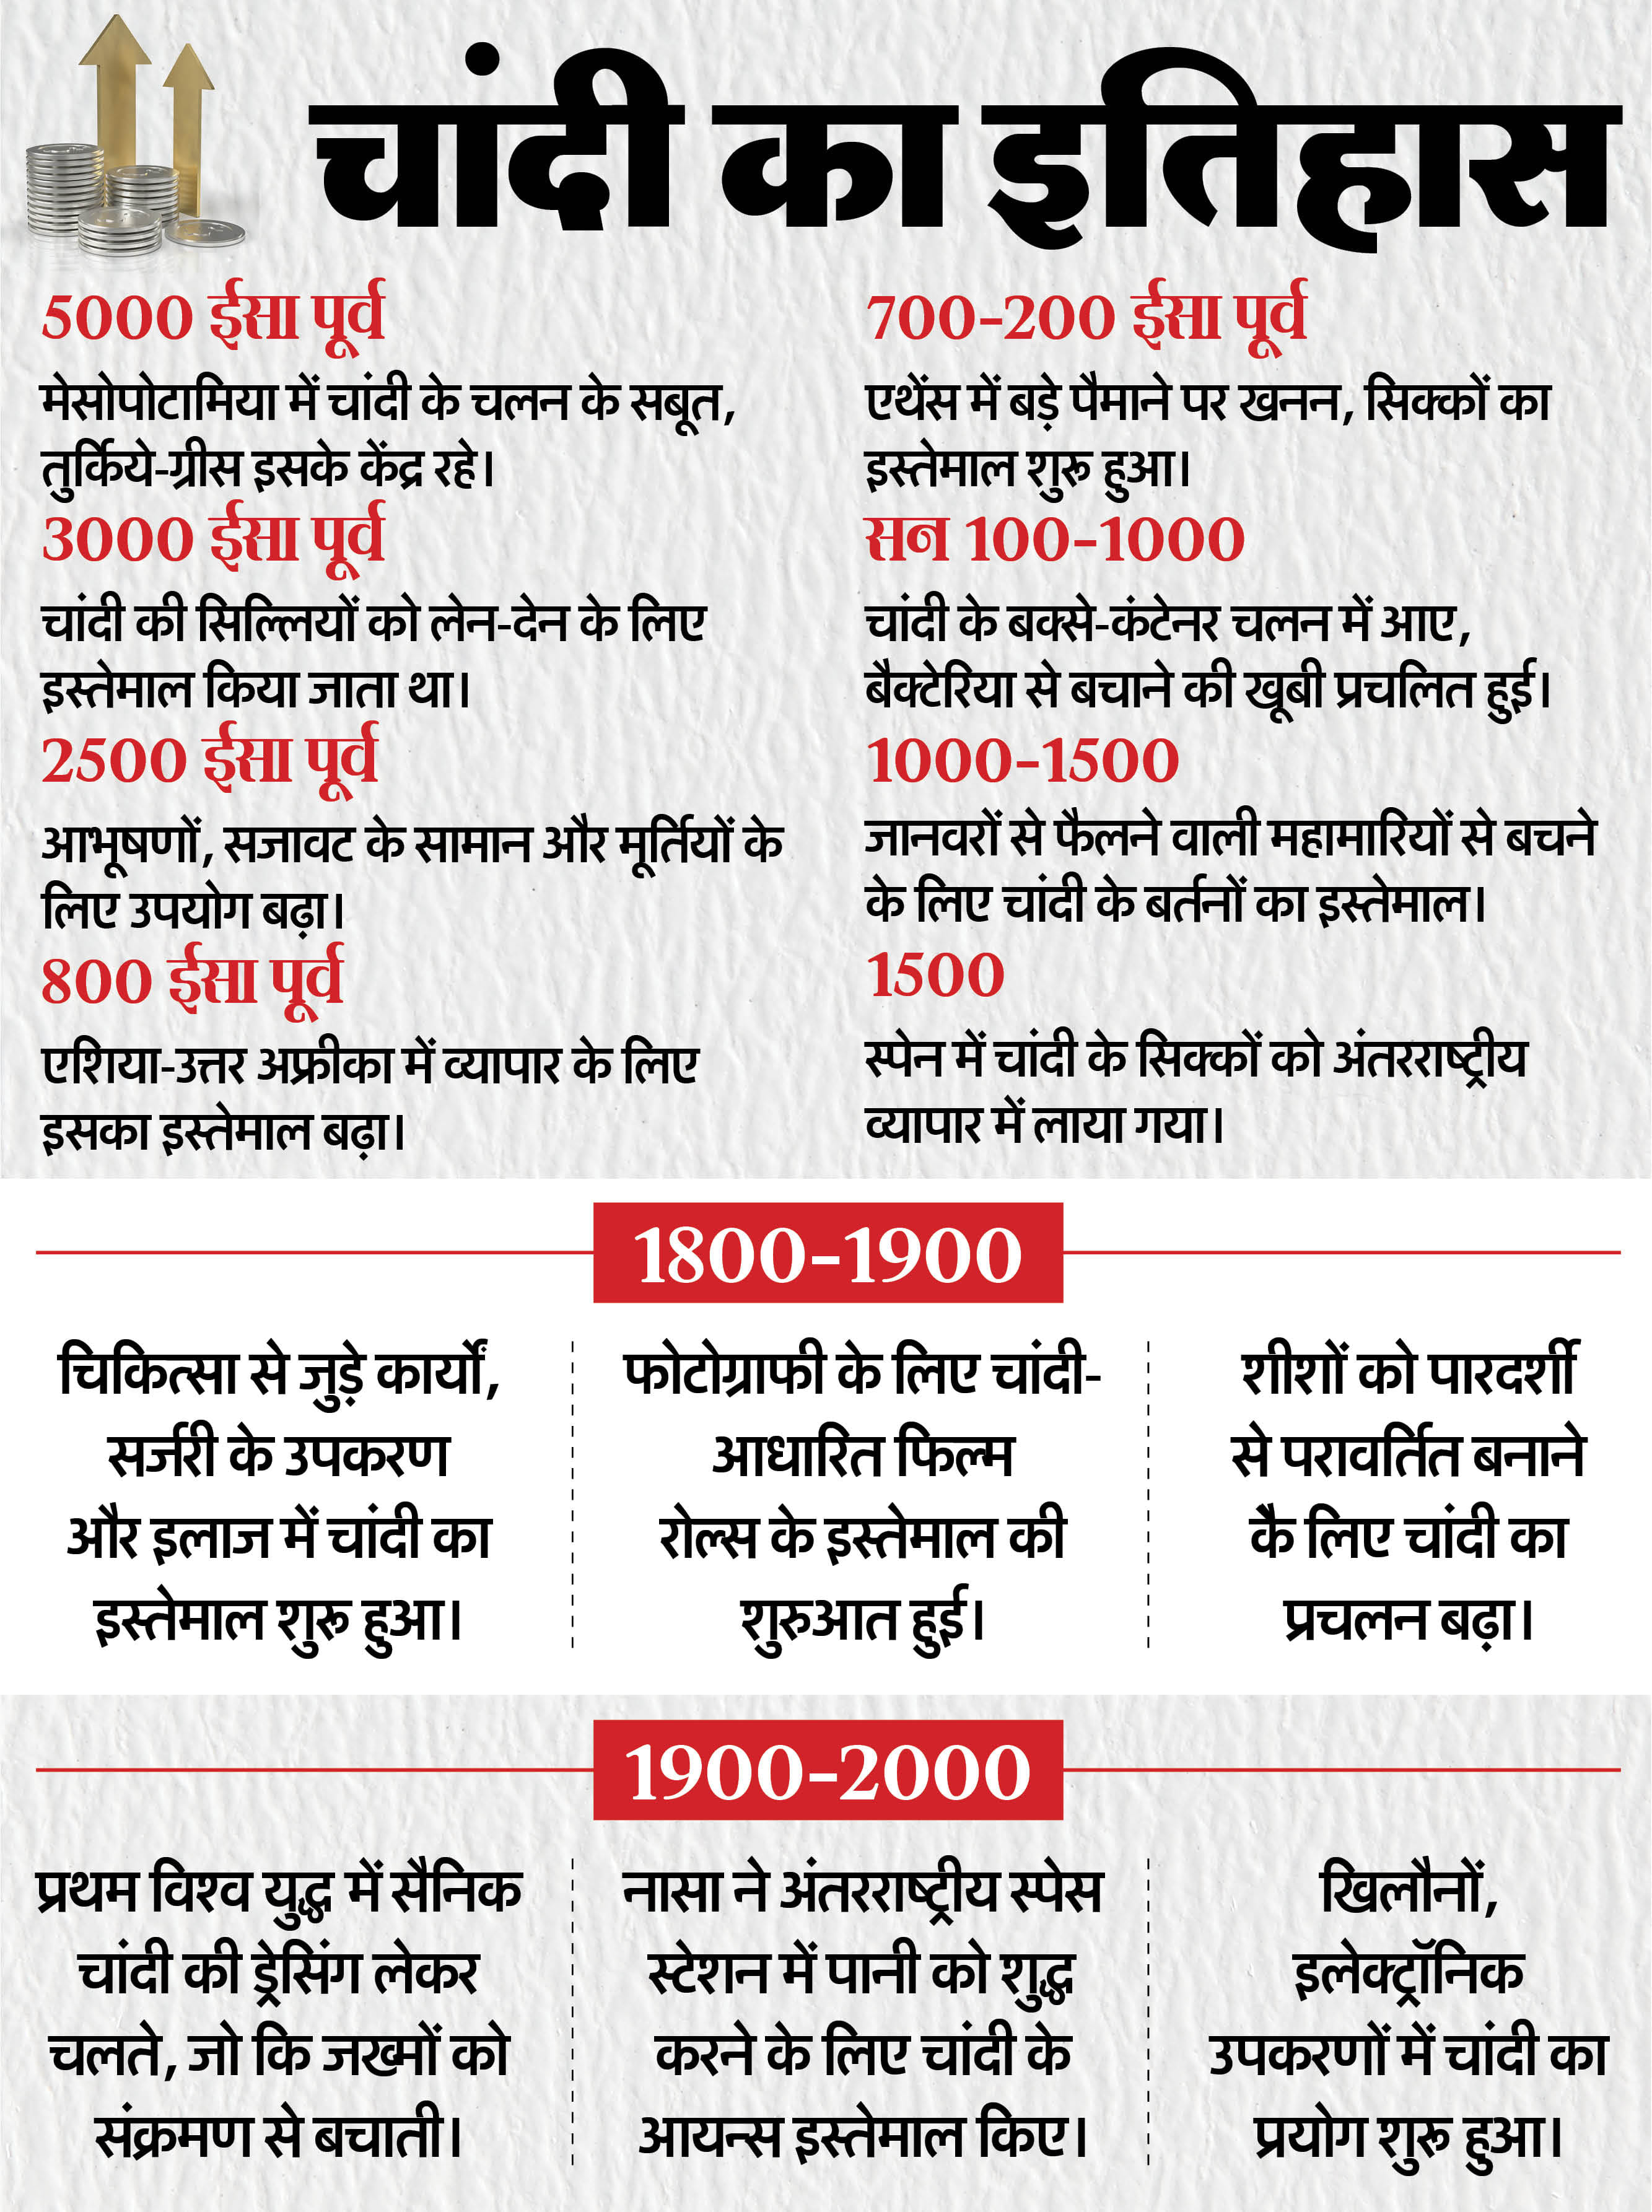 चांदी का इतिहास
5000 ईसा पूर्व
मेसोपोटामिया में चांदी के चलन के सबूत,
तुर्किये-ग्रीस इसके केंद्र रहे।
3000 ईसा पूर्व
चांदी की सिल्लियों को लेन-देन के लिए
इस्तेमाल किया जाता था।
2500 ईसा पूर्व
आभूषणों, सजावट के सामान और मूर्तियों के
लिए उपयोग बढ़ा।
800 ईसा पूर्व
एशिया-उत्तर अफ्रीका में व्यापार के लिए
इसका इस्तेमाल बढ़ा।
700-200 ईसा पूर्व
एथेंस में बड़े पैमाने पर खनन, सिक्कों का
इस्तेमाल शुरू हुआ।
सन 100-1000
चांदी के बक्से-कंटेनर चलन में आए,
बैक्टेरिया से बचाने की खूबी प्रचलित हुई।
1000-1500
जानवरों से फैलने वाली महामारियों से बचने
के लिए चांदी के बर्तनों का इस्तेमाल।
1500
स्पेन में चांदी के सिक्कों को अंतरराष्ट्रीय
व्यापार में लाया गया।
1800-1900
चिकित्सा से जुड़े कार्यों,
सर्जरी के उपकरण
और इलाज में चांदी का
इस्तेमाल शुरू हुआ।
फोटोग्राफी के लिए चांदी-
आधारित फिल्म
रोल्स के इस्तेमाल की
शुरुआत हुई।
शीशों को पारदर्शी
से परावर्तित बनाने
कै लिए चांदी का
प्रचलन बढ़ा।
1900-2000
प्रथम विश्व युद्ध में सैनिक
चांदी की ड्रेसिंग लेकर
चलते, जो कि जख्मों को
संक्रमण से बचाती।
नासा ने अंतरराष्ट्रीय स्पेस
स्टेशन में पानी को शुद्ध
करने के लिए चांदी के
आयन्स इस्तेमाल किए।
खिलौनों,
इलेक्ट्रॉनिक
उपकरणों में चांदी का
प्रयोग शुरू हुआ।